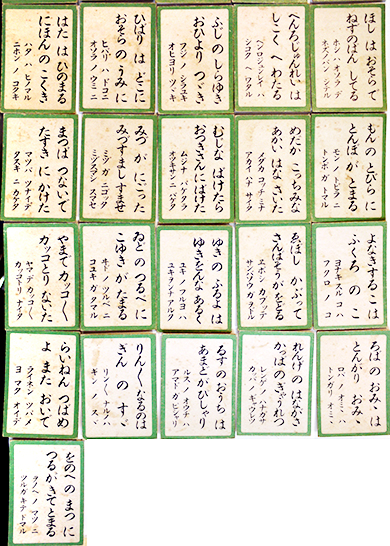 はた は ひのまる
にほんの こくき
ハタ ハ ヒノマル
ニホンノ コクキ
ひばり は どこに
おそらの うみに
ヒバリ ハ ドコニ
オソラノ ウミニ
ふじ の しらゆき
おひより つゞき
フジ ノ シラユキ
オヒヨリ ツヾキ
へんろじゅんれいは
しこく へ わたる
ヘンロジュンレイハ
シコク ヘワタル
ほし は おそらで
ねずのばん してる
ホシ ハ オソラデ
ネズノバン シテル
まつば つないで
たすき に かけた
マツバ ツナイデ
タスキ ニ カケタ
みづ が にごった
みづすまし すませ
ミヅ ガ ニゴッタ
ミヅスマシ スマセ
むじな ばけたら
おつきさんに ばけた
ムジナ バケタラ
オツキサンニ バケタ
めだか こっちみな
あかい はな さいた
メダカ コッチミナ
アカイ ハナ サイタ
もんの とびらに
とんぼ が とまる
モンノ トビラニ
トンボ ガ トマル
やまで カッコ〱
カッコとり ないた
ヤマデ カッコ〱
カッコトリ ナイタ
ゐどの つるべに
こゆきが たまる
ヰドノ ツルベニ
コユキ ガ タマル
ゆきの ふるよは
ゆきをんな あるく
ユキノ フルヨハ
ユキヲンナ アルク
ゑぼし かぶって
さんばそうが をどる
ヱボシ カブッテ
サンバソウガ ヲドル
よなきする こは
ふくろ の こ
ヨナキ スル コハ
フクロ ノ コ
らいねん つばめ
よ また おいで
ライネン ツバメ
ヨ マタ オイデ
りん〱なるのは
ぎん の すゞ
リン〱 ナルノハ
ギン ノ スヾ
るすの おうちは
あまどが ぴしゃり
ルスノ オウチハ
アマドガ ピシャリ
れんげ の はながさ
かっぱの ぎゃうれつ
レンゲ ノ ハナガサ
カッパノ ギャウレツ
ろばの おみゝは
とんがり おみゝ
ロバノ オミヽハ
トンガリ オミヽ
をのへの まつに
つるが きて とまる
ヲノヘノ マツニ
ツルガ キテ トマル